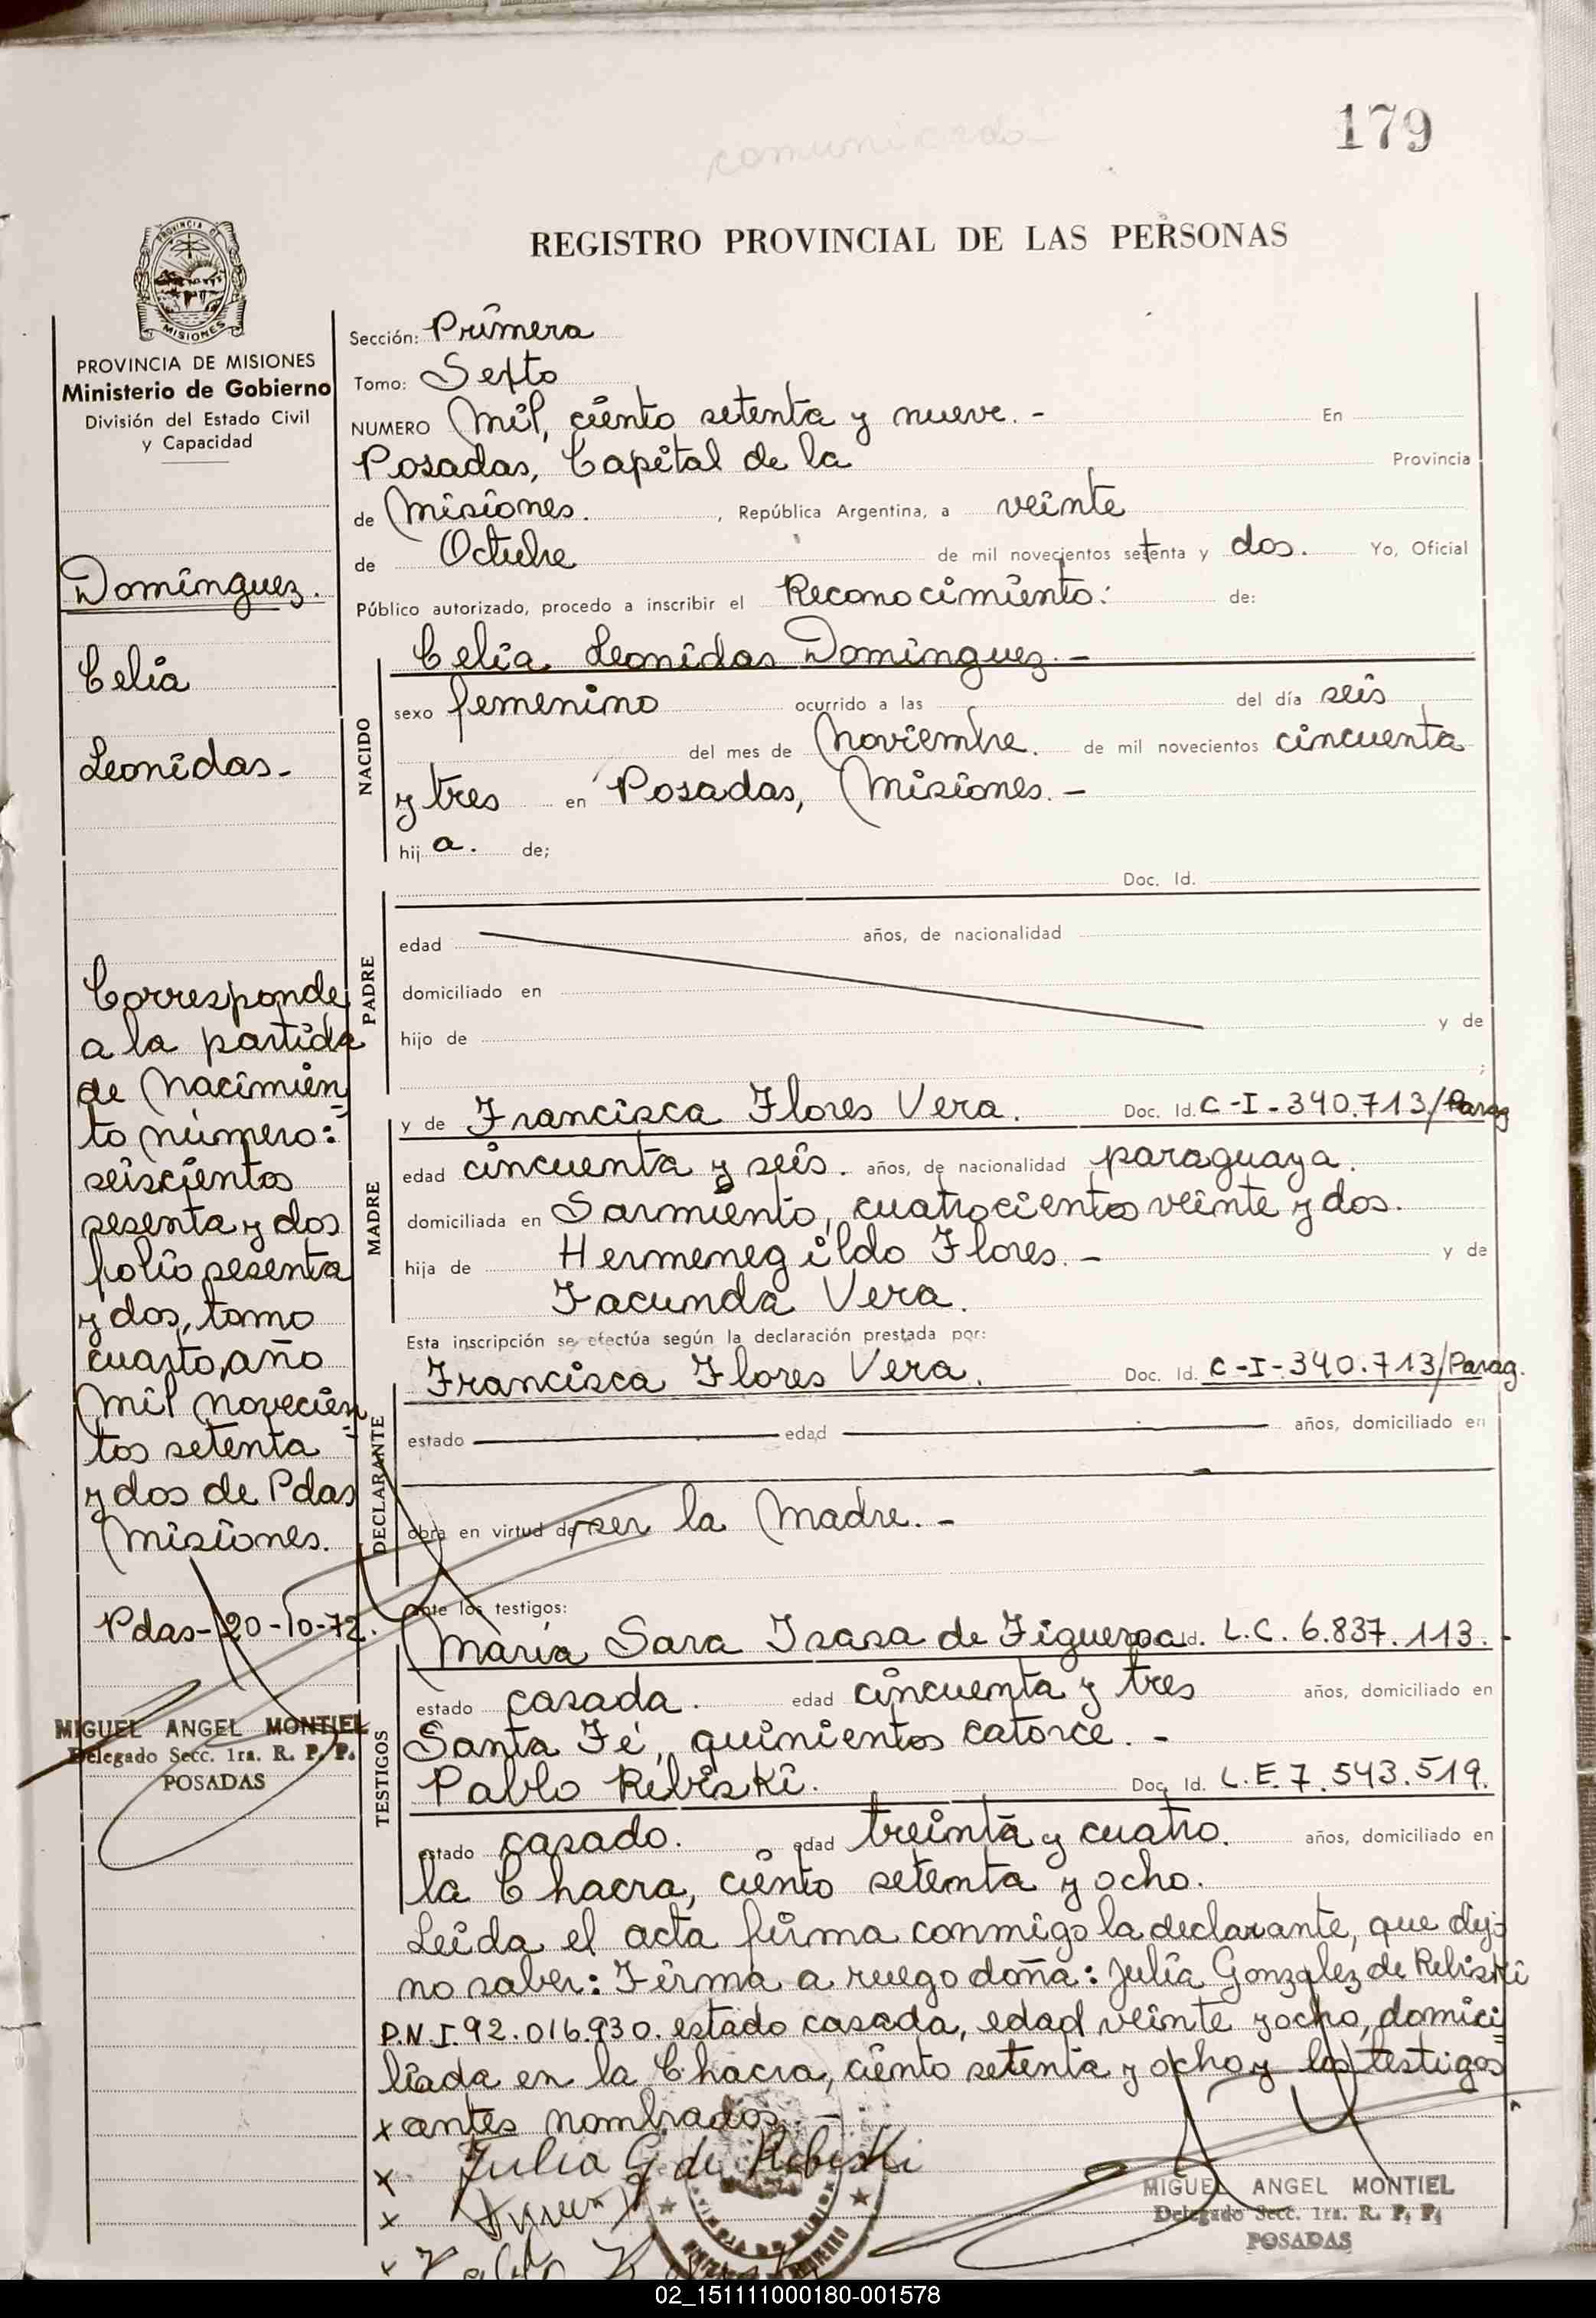 comunicado
179
REGISTRO PROVINCIAL DE LAS PERSONAS
PROVINCIA DE
MISIONES
PROVINCIA DE MISIONES
Ministerio de Gobierno
División del Estado Civil
y Capacidad
Domínguez.
Celia
Leonidas-
Corresponde
a la partida
de Nacimien
to número:
seiscientos
sesenta y dos
folio sesenta
y dos, tomo
cuarto, año
mil novecien
tos setenta
y dos de Pdas
Misiones.
Pdas-20-10-72.
MIGUEL ANGEL MONTIEL
Delegado Secc. 1ra. R. P. P.
POSADAS
Sección: Primera
Tomo: Sexto
NUMERO Mil, ciento setenta y nueve.- En
Posadas, Capital de la Provincia
de Misiones. , República Argentina, a veinte
de Octubre de mil novecientos setenta y dos. Yo, Oficial
Público autorizado, procedo a inscribir el Reconocimiento: de:
Celia Leonidas Domínguez.-
NACIDO
sexo femenino ocurrido a las del día seis
del mes de Noviembre. de mil novecientos cincuenta
y tres en Posadas, Misiones.-
hij a. de;
Doc. Id.
PADRE
edad años, de nacionalidad
domiciliado en
hijo de y de
;
MADRE
y de Francisca Flores Vera. Doc. Id. C-I-340.713/Parag
edad cincuenta y seis. años, de nacionalidad paraguaya.
domiciliada en Sarmiento, cuatrocientos veinte y dos.
hija de Hermenegildo Flores.- y de
Facunda Vera.
Esta inscripción se efectúa según la declaración prestada por:
Francisca Flores Vera. Doc. Id. C-I-340.713/Parag.
DECLARANTE
estado edad años, domiciliado en
obra en virtud de ser la Madre.-
ante los testigos:
TESTIGOS
María Sara Isasa de Figueroa Id. L.C. 6.837.113.
estado casada. edad cincuenta y tres años, domiciliado en
Santa Fé, quinientos catorce.-
Pablo Rebiski. Doc. Id. L.E. 7.543.519.
estado casado. edad treinta y cuatro. años, domiciliado en
la Chacra, ciento setenta y ocho.
Leída el acta firma conmigo la declarante, que dijo
no saber: Firma a ruego doña: Julia Gonzalez de Rebiski
D.N.I. 92.016.930. estado casada, edad veinte y ocho, domici
liada en la Chacra, ciento setenta y ocho y los testigos
x antes nombrados.-
x Julia G de Rebiski
x
x
MIGUEL ANGEL MONTIEL
Delegado Secc. 1ra. R. P. P.
POSADAS
02_151111000180-001578